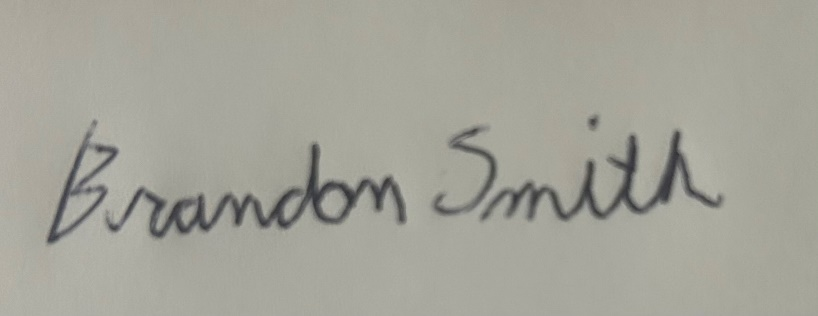 Brandon Smith